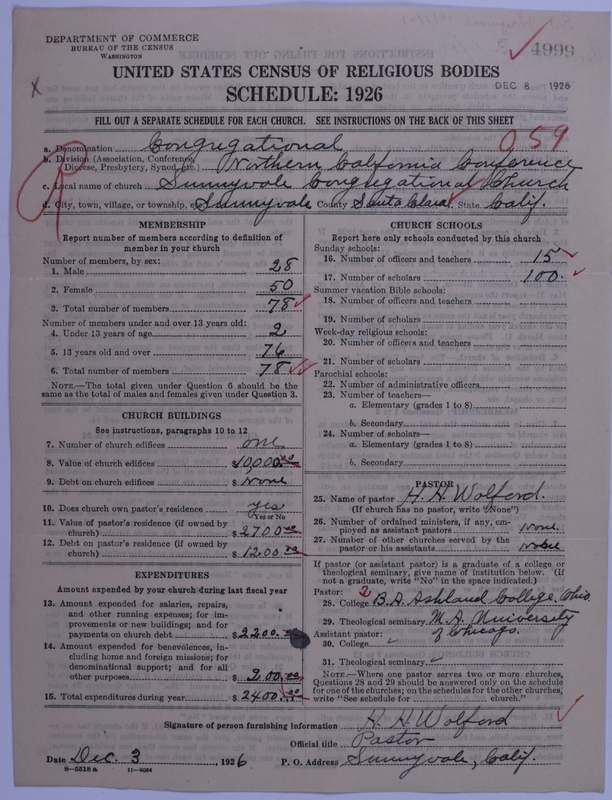 DEPARTMENT OF COMMERCE
BUREAU OF THE CENSUS
WASHINGTON
4999
UNITED STATES CENSUS OF RELIGIOUS BODIES
SCHEDULE: 1926
DEC 8 1926
X
FILL OUT A SEPARATE SCHEDULE FOR EACH CHURCH. SEE INSTRUCTIONS ON THE BACK OF THIS SHEET
a. Denomination Congregational 059
b. Division (Association, Conference, Diocese, Presbytery, Synod, etc.) Northern California Conference
c. Local name of church Sunnyvale Congregational Church
d. City, town, village, or township, etc. Sunnyvale County Santa Clara State Calif.
MEMBERSHIP
Report number of members according to definition of
member in your church
Number of members, by sex:
1. Male 28
2. Female 50
3. Total number of members 78
Number of members under and over 13 years old:
4. Under 13 years of age 2
5. 13 years old and over 76
6. Total number of members 78
NOTE.—The total given under Question 6 should be the
same as the total of males and females given under Question 3.
CHURCH BUILDINGS
See instructions, paragraphs 10 to 12
7. Number of church edifices one
8. Value of church edifices $10,000.00
9. Debt on church edifices $ None
10. Does church own pastor's residence yes
Yes or No
11. Value of pastor's residence (if owned by
church) $2700.00
12. Debt on pastor's residence (if owned by
church) $1200.00
EXPENDITURES
Amount expended by your church during last fiscal year
13. Amount expended for salaries, repairs,
and other running expenses; for im-
provements or new buildings; and for
payments on church debt $2200.00
14. Amount expended for benevolences, in-
cluding home and foreign missions; for
denominational support; and for all
other purposes $200.00
15. Total expenditures during year $2400.00
CHURCH SCHOOLS
Report here only schools conducted by this church
Sunday schools:
16. Number of officers and teachers 15
17. Number of scholars 100
Summer vacation Bible schools:
18. Number of officers and teachers
19. Number of scholars
Week-day religious schools:
20. Number of officers and teachers
21. Number of scholars
Parochial schools:
22. Number of administrative officers
23. Number of teachers—
a. Elementary (grades 1 to 8)
b. Secondary
24. Number of scholars—
a. Elementary (grades 1 to 8)
b. Secondary
PASTOR
25. Name of pastor H. H. Wolford.
(If church has no pastor, write "None")
26. Number of ordained ministers, if any, em-
ployed as assistant pastors None.
27. Number of other churches served by the
pastor or his assistants None
If pastor (or assistant pastor) is a graduate of a college or
theological seminary, give name of institution below. (If
not a graduate, write "No" in the space indicated.)
Pastor: 2
28. College B.A. Ashland College, Ohio.
29. Theological seminary M.A. University
Assistant pastor: of Chicago.
30. College
31. Theological seminary
NOTE.—Where one pastor serves two or more churches,
Questions 28 and 29 should be answered only on the schedule
for one of the churches; on the schedules for the other churches,
write "See schedule for church."
Signature of person furnishing information H. H. Wolford
Official title Pastor
Date Dec. 3, 1926 P. O. Address Sunnyvale, Calif.
8—5518a 11—9084